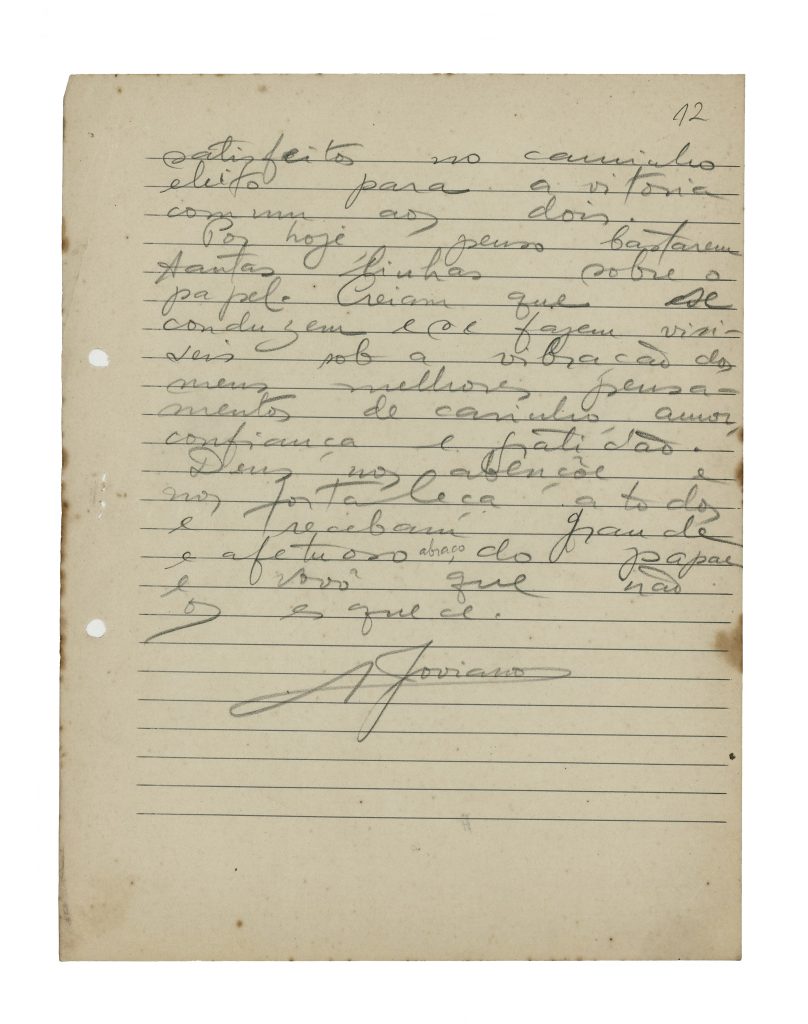 12
satisfeitos no caminho
eleito para a vitoria
commum aos dois.
Por hoje, penso bastarem
tantas linhas sobre o
papel. Creiam que se
conduzem e se fazem visi-
veis sob a vibração dos
meus melhores pensa-
mentos de carinho, amor,
confiança e gratidão.
Deus nos abençõe e
nos fortaleça a todos
e recebam grande
e afetuoso abraço do papae
e vovô que não
os esquece.
A Joviano